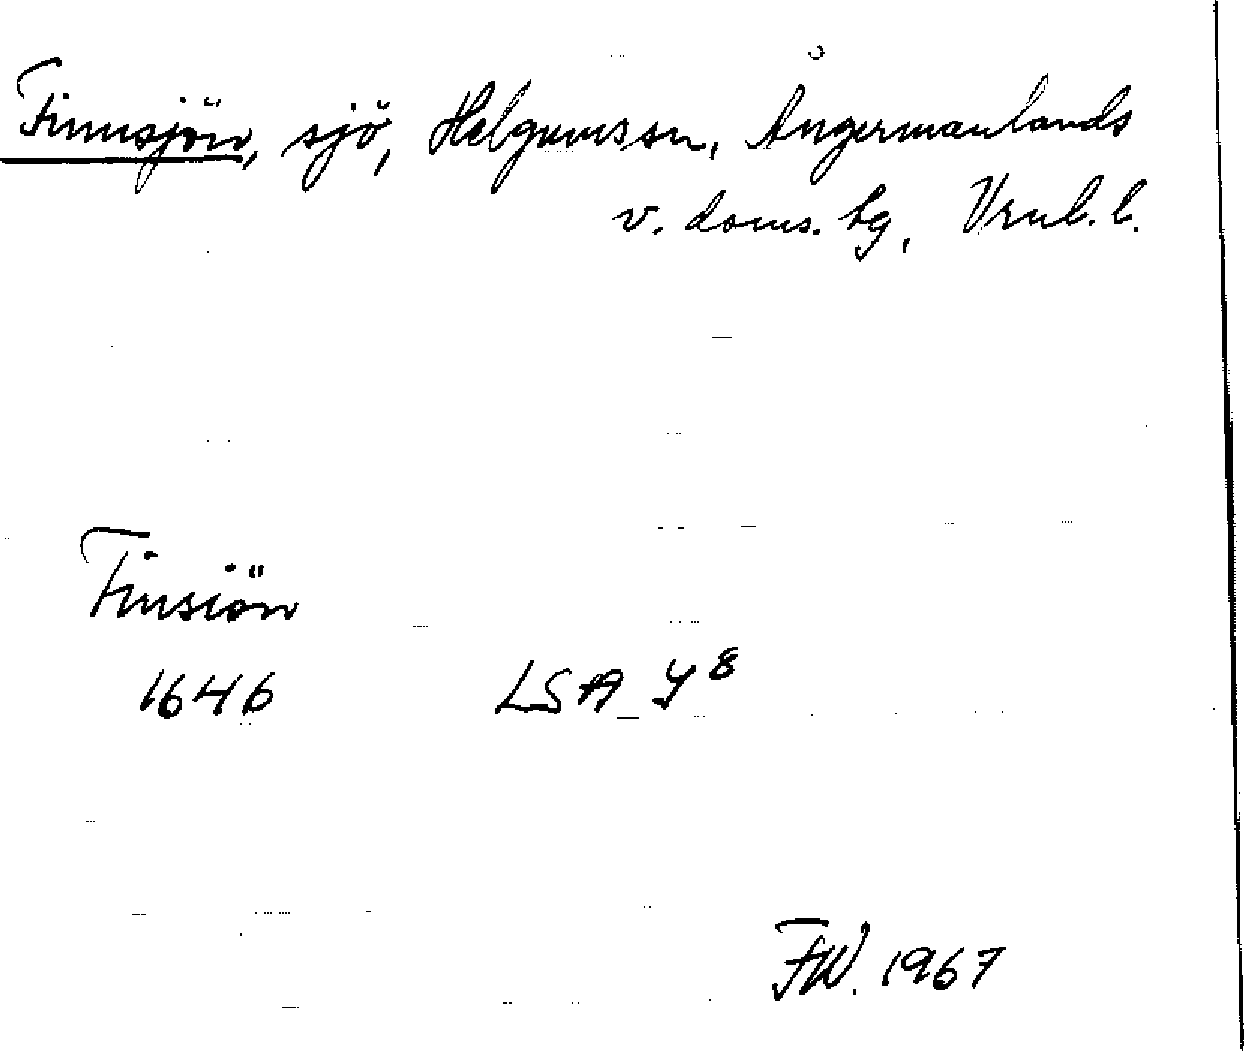 Finnsjön, sjö, Helgums sn, Ångermanlands
v. doms. tg, Vrnl. l.
Finsiön
1646 LSA Y 8
FW. 1967